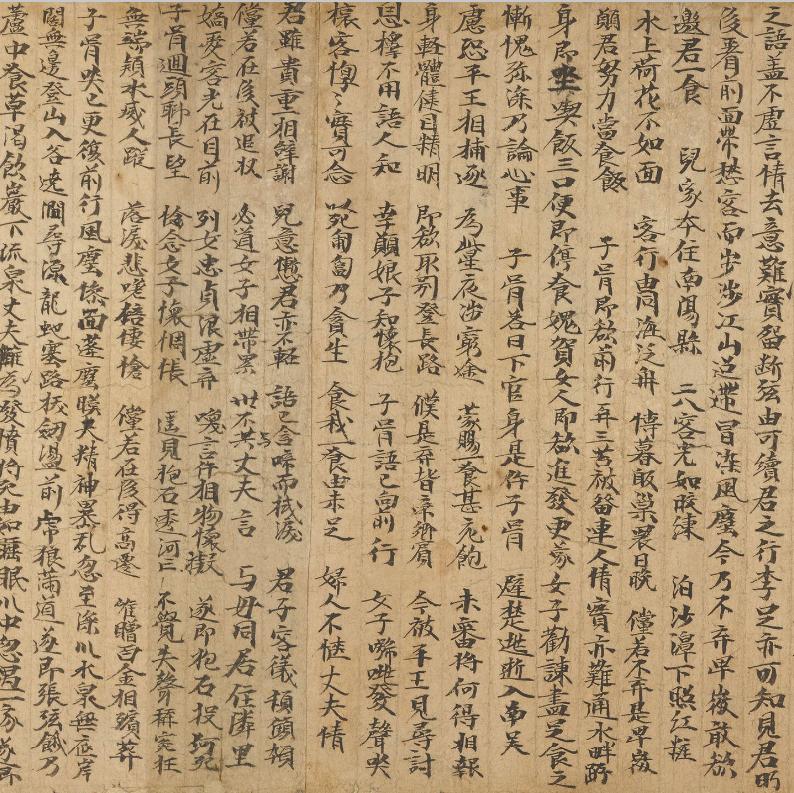 之語盖不虛言情去意難實留断弦由可續君之行李足亦可知見君盼
後看前面帶愁容而步涉江山迢遰冒染風塵今乃不弃卑微敢欲
邀君一食 兒家本住南陽縣 二八容光如皎練 泊沙潭下照紅粧
水上荷花不如面 客行由同海泛舟 博暮皈巢畏日晚 儻若不弃是卑微
願君努力當食飯 子胥即欲前行再三苦被留連人情實亦難通水畔蹲
身即坐喫飯三口便即停食媿賀女人即欲進發更蒙女子勸諫盡足食之
慚愧弥深乃論心事 子胥答曰下官身是仵子胥 避楚逃逝入南吴
慮恐平王相捕逐 為此星夜涉窮途 蒙賜一食甚充飽 未審將何得相報
身輕體健目精明 即欲取別登長路 僕是弃背帝鄉賓 今被平王見尋討
恩澤不用語人知 幸願娘子知懷抱 子胥語已向前行 女子號咷發聲哭
客惸〻實可念 以死匍匐乃貪生 食我一食由未足 婦人不愜丈夫情
君雖貴重相辭謝 兒意慚君亦不輕 語已含啼而拭淚 君子容儀頓顦顇
儻若在後被追收 必道女子相帶累 卅不共丈夫言 与母同居住隣里
嬌愛容光在目前 列女忠貞浪虛弃 喚言仵相物懷擬 遂即抱石投河死
子胥迴頭聊長望 憐念女子懷惆悵 遥見抱石透河亡 不覺失聲稱冤枉
無端潁水滅人蹤 落淚悲嗟倍悽愴 儻若在後得高遷 唯贈百金相殯葬
子胥哭已更復前行風塵慘面蓬塵暎天精神暴乱忽至深川水泉無底岸
闊無邊登山入谷遶澗尋源龍虵塞路拔劒盪前虎狼滿道遂即張弦餓乃
蘆中食草渴飲巖下流泉丈夫雠為發憤將死由如睡眠川中忽遇一家遂即